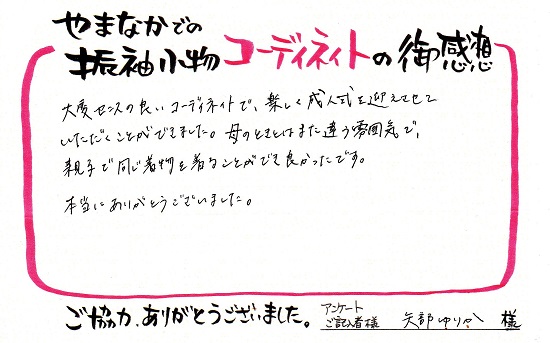 やまなかでの
振袖小物コーディネイトの御感想
大変センスの良いコーディネイトで、楽しく成人式を迎えさせて
いただくことができました。母のときとはまた違う雰囲気で、
親子で同じ着物を着ることができ良かったです。
本当にありがとうございました。
ご協力、ありがとうございました。
アンケート
ご記入者様 矢部ゆりか 様